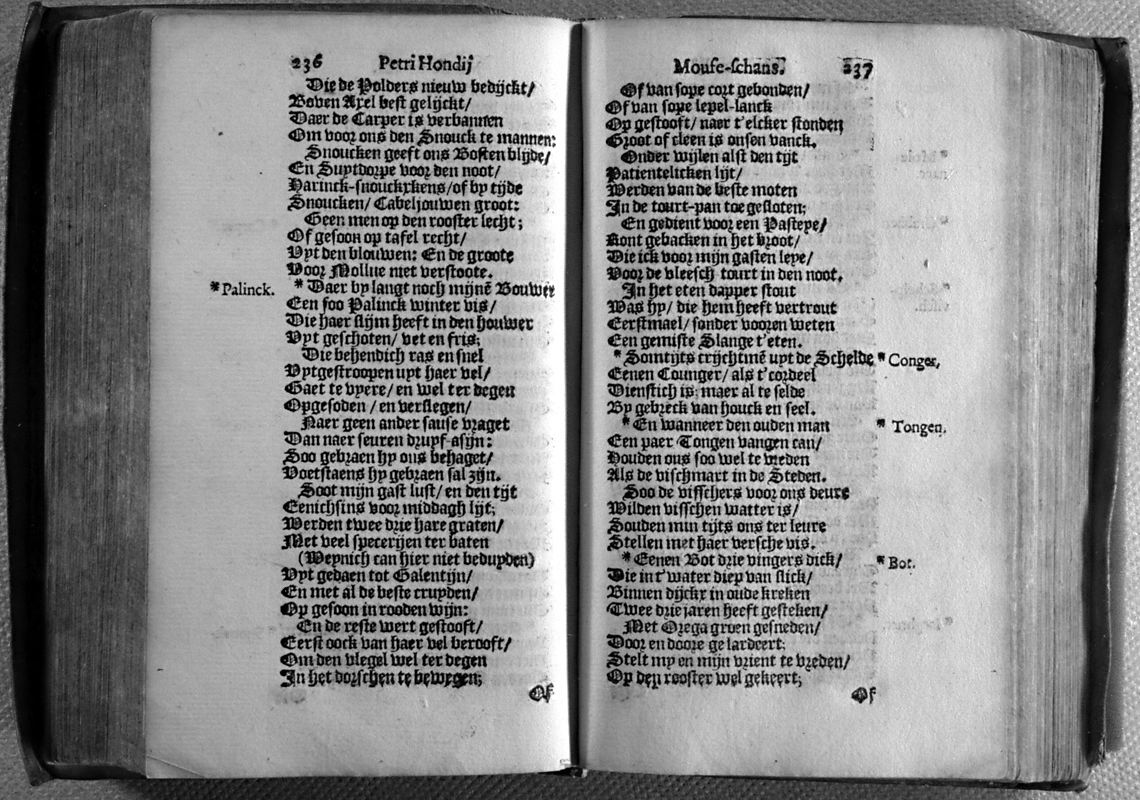 236 Petri Hondij
Die de Polders nieuw bedijckt/
Boven Axel best gelijckt/
Daer de Carper is verbannen
Om voor ons den Snouck te mannen:
Snoucken geeft ons Bosten blijde/
En Suytdorpe voor den noot/
Harinck-snouckxkens/of by tijde
Snoucken/ Cabeljouwen groot:
Geen men op den rooster lecht;
Of gesoon op tafel recht/
Uyt den blouwen: En de groote
Voor Mollue niet verstoote.
*Palinck. * Daer by langt noch mijnē Bouwer
Een soo Palinck winter vis/
Die haer slijm heeft in den houwer
Uyt geschoten/ vet en fris;
Die behendich ras en snel
Uytgestroopen uyt haer vel/
Gaet te vyere/ en wel ter degen
Opgesoden/ en verslegen/
Naer geen ander sause vraget
Dan naer seuren druyf-asijn:
Soo gebraen hy ons behaget/
Voetstaens hy gebraen sal zijn.
Soot mijn gast lust/ en den tijt
Eenichsins voor middagh lijt;
Werden twee drie hare graten/
Met veel specerijen ter baten
(Weynich can hier niet beduyden)
Uyt gedaen tot Galentijn/
En met al de beste cruyden/
Op gesoon in rooden wijn:
En de reste wert gestooft/
Eerst oock van haer vel berooft/
Om den vlegel wel ter degen
In het dorschen te bewegen;
Of
Mouse-schans. 237
Of van sope cort gebonden/
Of van sope lepel-lanck
Op gestooft/ naer t'elcker stonden
Groot of cleen is onsen vanck.
Onder wijlen alst den tijt
Patientelicken lijt/
Werden van de beste moten
In de tourt-pan toe gesloten;
En gedient voor een Pasteye/
Ront gebacken in het broot/
Die ick voor mijn gasten leye/
Voor de vleesch tourt in den noot.
In het eten dapper stout
Was hy/ die hem heeft vertrout
Eerstmael/ sonder vooren weten
Een gemiste Slange t'eten.
* Somtijts crijchtmē uyt de Schelde * Conger.
Eenen Counger/ als t'cordeel
Dienstich is; maer al te selde
By gebreck van houck en seel.
* En wanneer den ouden man * Tongen.
Een paer Tongen vangen can/
Houden ons soo wel te vreden
Als de vischmart in de Steden.
Soo de visschers voor ons deure
Wilden visschen watter is/
Souden min tijts ons ter leure
Stellen met haer versche vis.
* Eenen Bot drie vingers dick/ * Bot.
Die in t'water diep van slick/
Binnen dijckx in oude kreken
Twee drie jaren heeft gesteken/
Met Orega groen gesneden/
Door en doore gelardeert;
Stelt my en mijn vrient te vreden/
Op den rooster wel gekeert;
Of